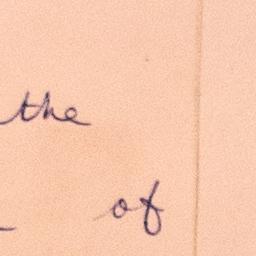 the
of